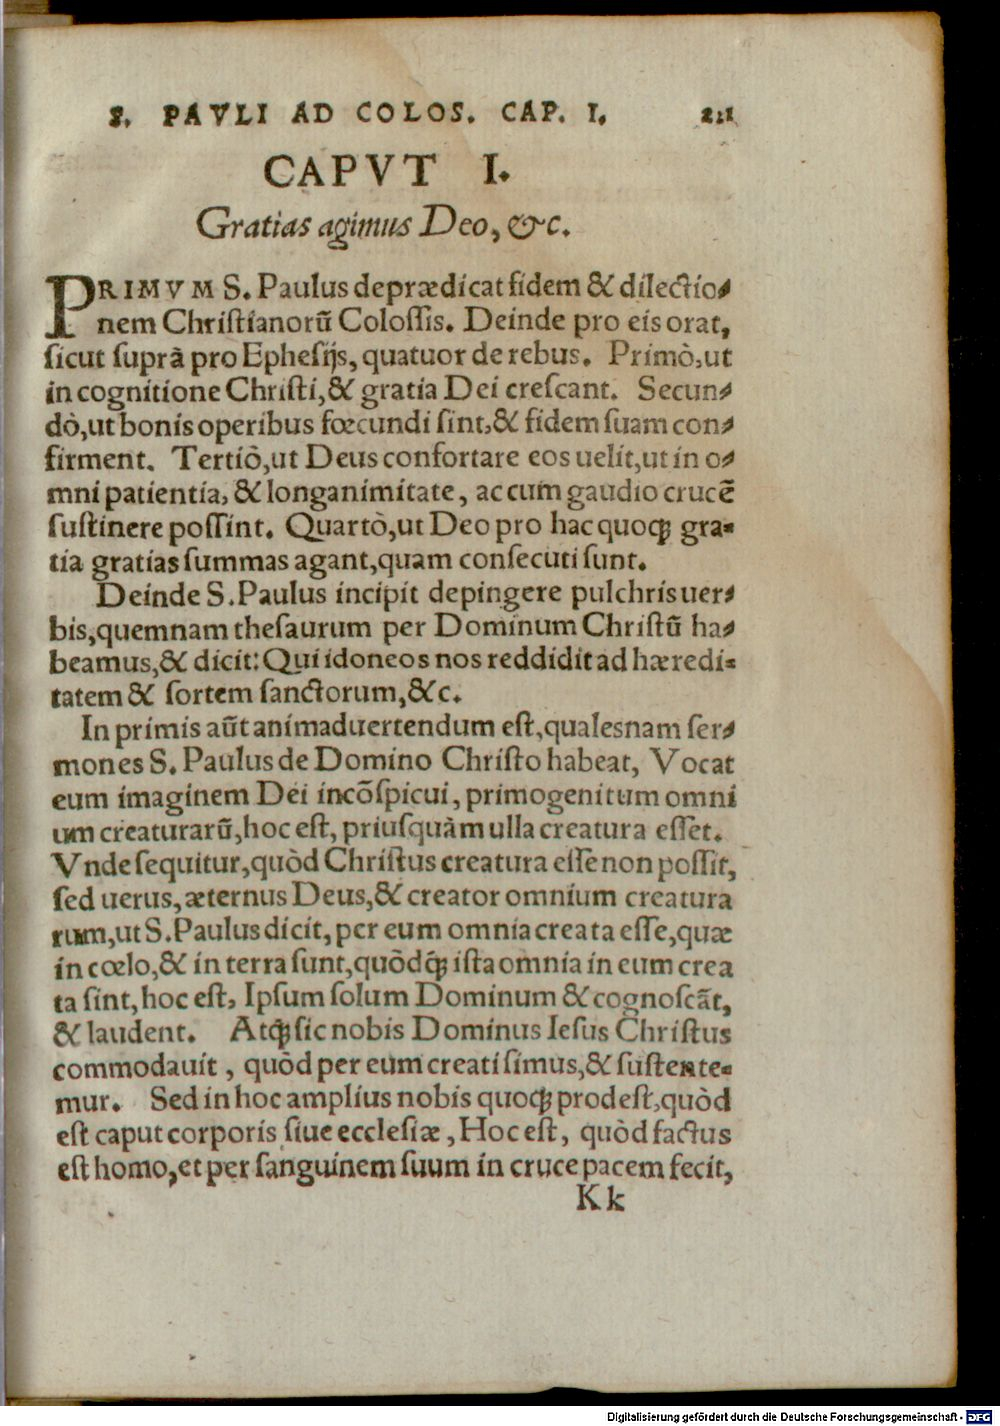 S. PAVLI AD COLOS. CAP. I. 211
CAPVT I.
Gratias agimus Deo, &c.
PRIMVM S. Paulus deprædicat fidem & dilectio-
nem Christianorũ Colossis. Deinde pro eis orat,
sicut suprà pro Ephesijs, quatuor de rebus. Primò, ut
in cognitione Christi, & gratia Dei crescant. Secun-
dò, ut bonis operibus fœcundi sint, & fidem suam con-
firment. Tertiò, ut Deus confortare eos uelit, ut in o-
mni patientia, & longanimitate, ac cum gaudio crucẽ
sustinere possint. Quartò, ut Deo pro hac quoqꝫ gra-
tia gratias summas agant, quam consecuti sunt.
Deinde S. Paulus incipit depingere pulchris uer-
bis, quemnam thesaurum per Dominum Christũ ha-
beamus, & dicit: Qui idoneos nos reddidit ad hæredi-
tatem & sortem sanctorum, &c.
In primis aũt animaduertendum est, qualesnam ser-
mones S. Paulus de Domino Christo habeat, Vocat
eum imaginem Dei incõspicui, primogenitum omni
um creaturarũ, hoc est, priusquàm ulla creatura esset.
Vnde sequitur, quòd Christus creatura esse non possit,
sed uerus, æternus Deus, & creator omnium creatura
rum, ut S. Paulus dicit, per eum omnia creata esse, quæ
in cœlo, & in terra sunt, quòdq́ꝫ ista omnia in eum crea
ta sint, hoc est, Ipsum solum Dominum & cognoscãt,
& laudent. Atqꝫ sic nobis Dominus Iesus Christus
commodauit, quòd per eum creati simus, & sustente-
mur. Sed in hoc amplius nobis quoqꝫ prodest, quòd
est caput corporis siue ecclesiæ, Hoc est, quòd factus
est homo, et per sanguinem suum in cruce pacem fecit,
Kk
Digitalisierung gefördert durch die Deutsche Forschungsgemeinschaft - DFG